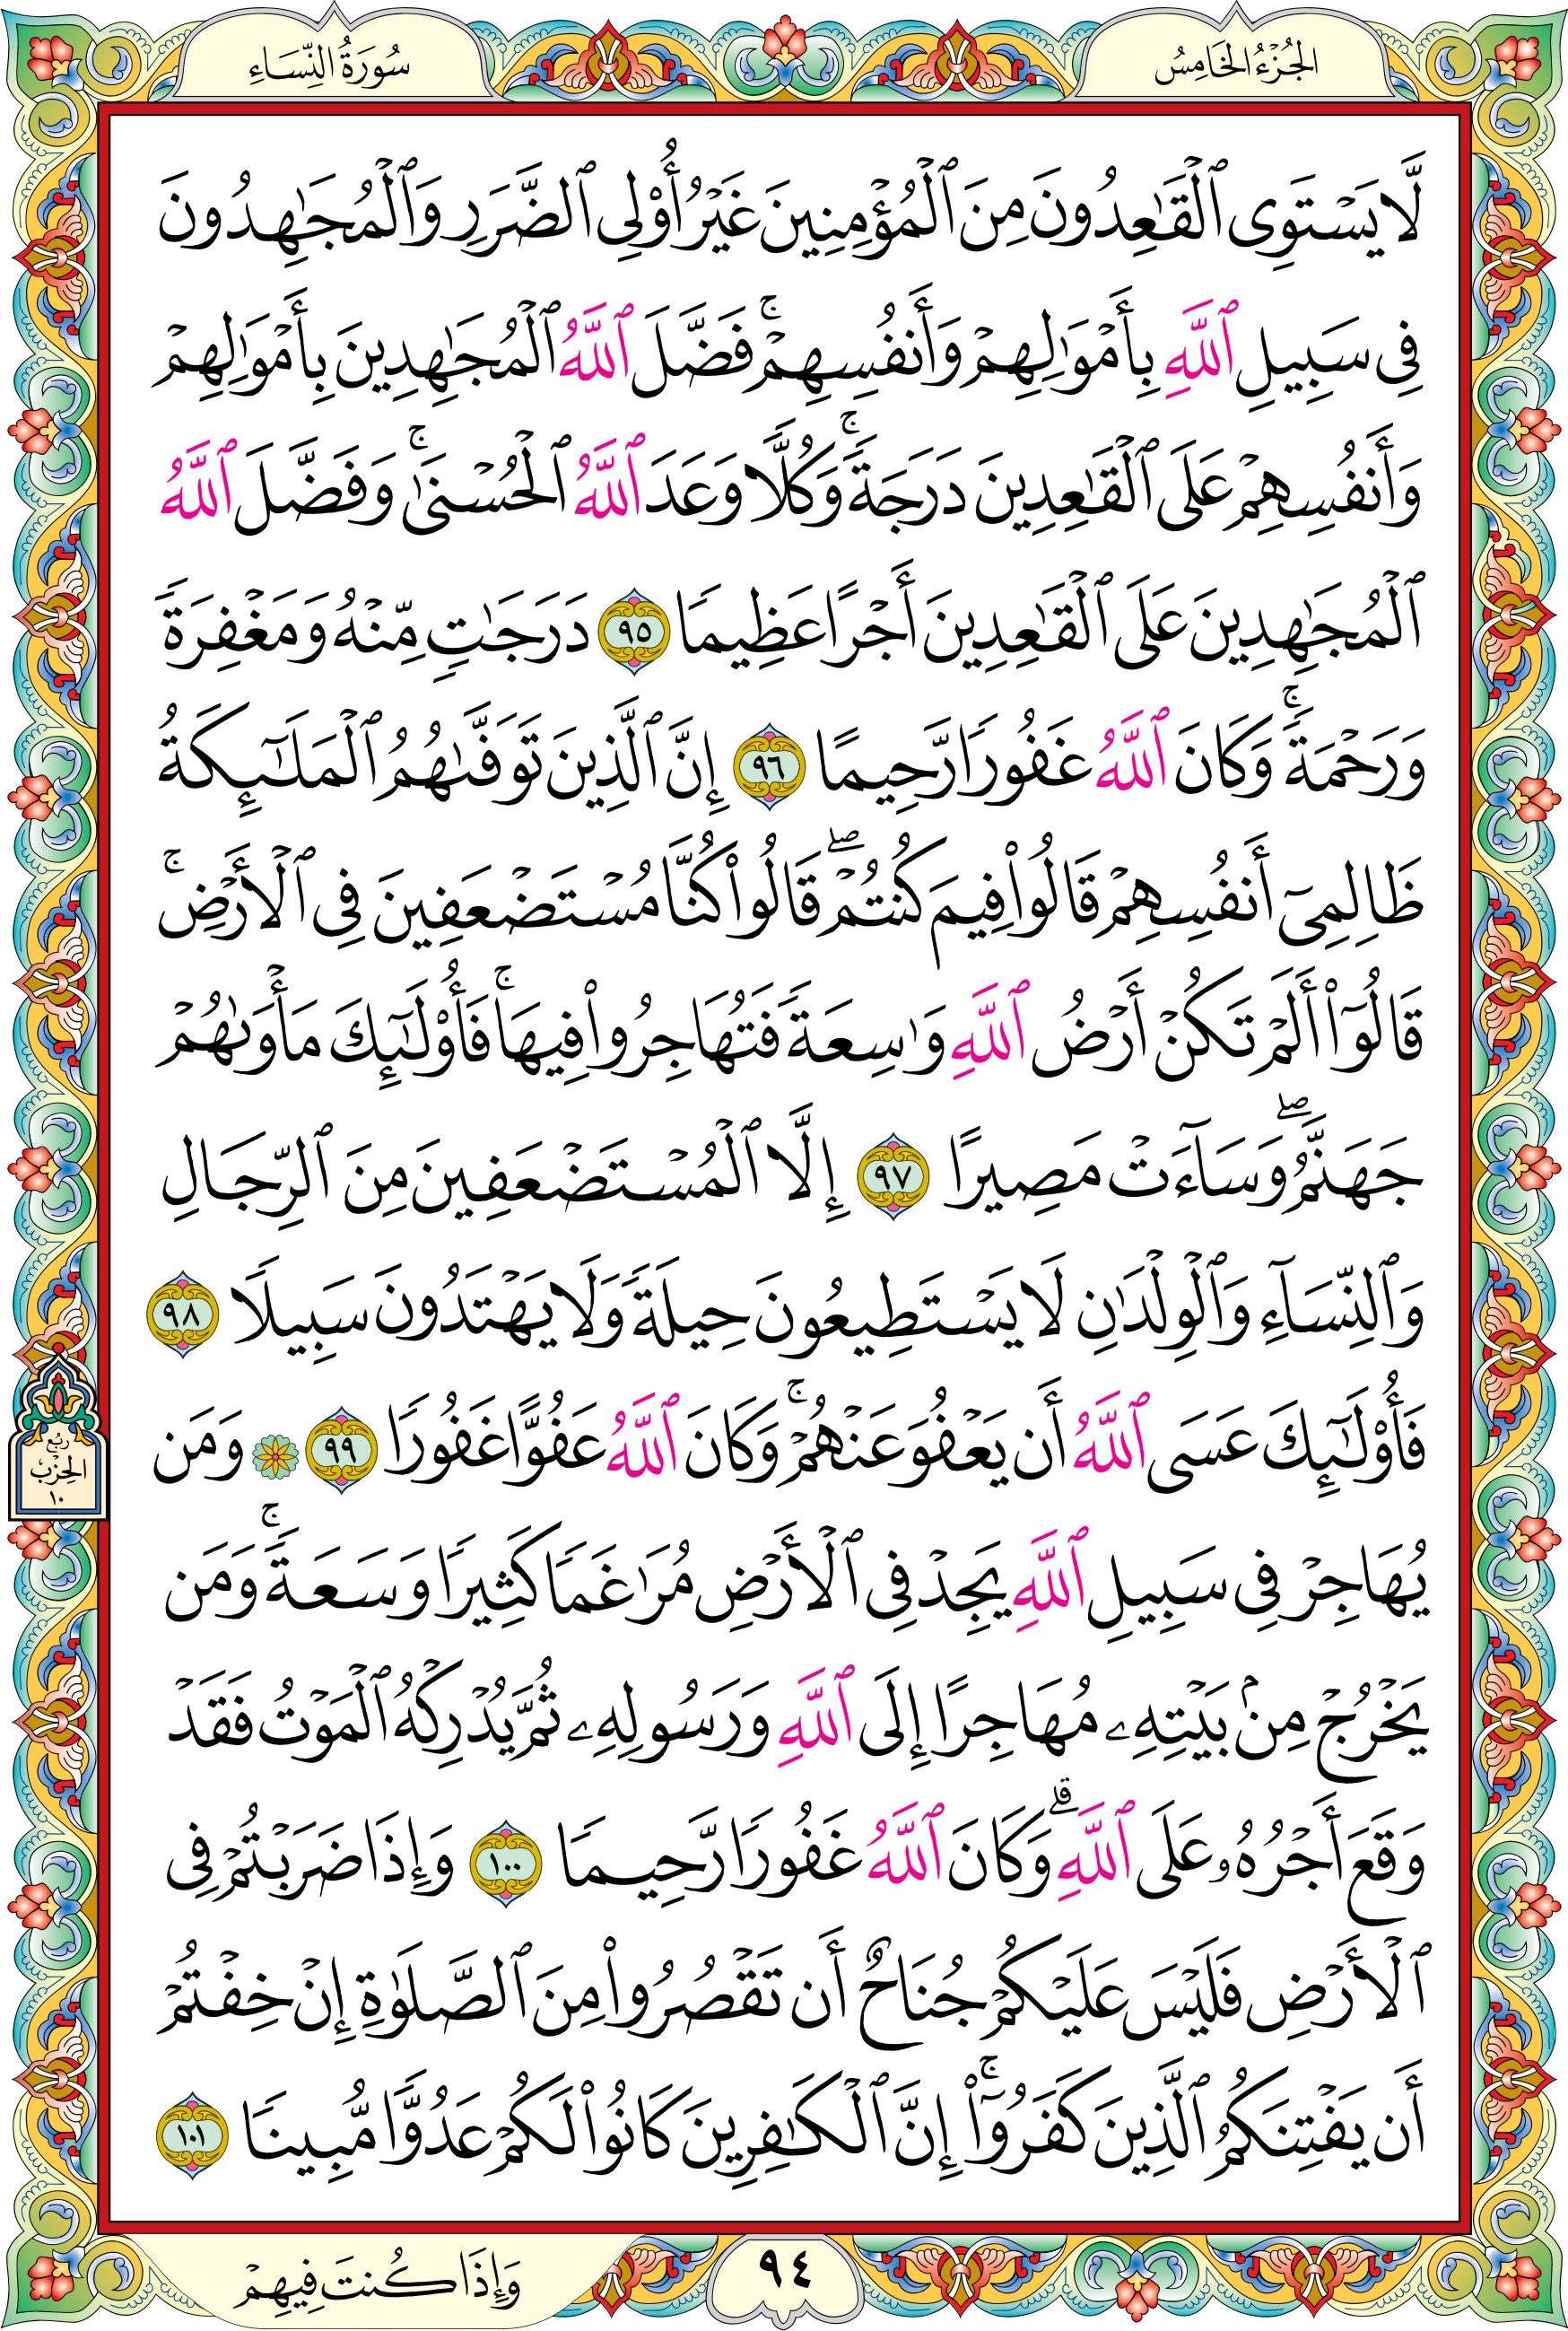 الجُزْءُ الخَامِسُ
سُورَةُ النِّسَاءِ
لَّا يَسْتَوِى ٱلْقَٰعِدُونَ مِنَ ٱلْمُؤْمِنِينَ غَيْرُ أُو۟لِى ٱلضَّرَرِ وَٱلْمُجَٰهِدُونَ
فِى سَبِيلِ ٱللَّهِ بِأَمْوَٰلِهِمْ وَأَنفُسِهِمْ ۚ فَضَّلَ ٱللَّهُ ٱلْمُجَٰهِدِينَ بِأَمْوَٰلِهِمْ
وَأَنفُسِهِمْ عَلَى ٱلْقَٰعِدِينَ دَرَجَةً ۚ وَكُلًّا وَعَدَ ٱللَّهُ ٱلْحُسْنَىٰ ۚ وَفَضَّلَ ٱللَّهُ
ٱلْمُجَٰهِدِينَ عَلَى ٱلْقَٰعِدِينَ أَجْرًا عَظِيمًا ٩٥ دَرَجَٰتٍ مِّنْهُ وَمَغْفِرَةً
وَرَحْمَةً ۚ وَكَانَ ٱللَّهُ غَفُورًا رَّحِيمًا ٩٦ إِنَّ ٱلَّذِينَ تَوَفَّىٰهُمُ ٱلْمَلَٰٓئِكَةُ
ظَالِمِىٓ أَنفُسِهِمْ قَالُوا۟ فِيمَ كُنتُمْ ۖ قَالُوا۟ كُنَّا مُسْتَضْعَفِينَ فِى ٱلْأَرْضِ ۚ
قَالُوٓا۟ أَلَمْ تَكُنْ أَرْضُ ٱللَّهِ وَٰسِعَةً فَتُهَاجِرُوا۟ فِيهَا ۚ فَأُو۟لَٰٓئِكَ مَأْوَىٰهُمْ
جَهَنَّمُ ۖ وَسَآءَتْ مَصِيرًا ٩٧ إِلَّا ٱلْمُسْتَضْعَفِينَ مِنَ ٱلرِّجَالِ
وَٱلنِّسَآءِ وَٱلْوِلْدَٰنِ لَا يَسْتَطِيعُونَ حِيلَةً وَلَا يَهْتَدُونَ سَبِيلًا ٩٨
فَأُو۟لَٰٓئِكَ عَسَى ٱللَّهُ أَن يَعْفُوَ عَنْهُمْ ۚ وَكَانَ ٱللَّهُ عَفُوًّا غَفُورًا ٩٩ ۞ وَمَن
يُهَاجِرْ فِى سَبِيلِ ٱللَّهِ يَجِدْ فِى ٱلْأَرْضِ مُرَٰغَمًا كَثِيرًا وَسَعَةً ۚ وَمَن
يَخْرُجْ مِنۢ بَيْتِهِۦ مُهَاجِرًا إِلَى ٱللَّهِ وَرَسُولِهِۦ ثُمَّ يُدْرِكْهُ ٱلْمَوْتُ فَقَدْ
وَقَعَ أَجْرُهُۥ عَلَى ٱللَّهِ ۗ وَكَانَ ٱللَّهُ غَفُورًا رَّحِيمًا ١٠٠ وَإِذَا ضَرَبْتُمْ فِى
ٱلْأَرْضِ فَلَيْسَ عَلَيْكُمْ جُنَاحٌ أَن تَقْصُرُوا۟ مِنَ ٱلصَّلَوٰةِ إِنْ خِفْتُمْ
أَن يَفْتِنَكُمُ ٱلَّذِينَ كَفَرُوٓا۟ ۚ إِنَّ ٱلْكَٰفِرِينَ كَانُوا۟ لَكُمْ عَدُوًّا مُّبِينًا ١٠١
رُبْع
الحِزْب
١٠
٩٤
وَإِذَا كُنتَ فِيهِمْ